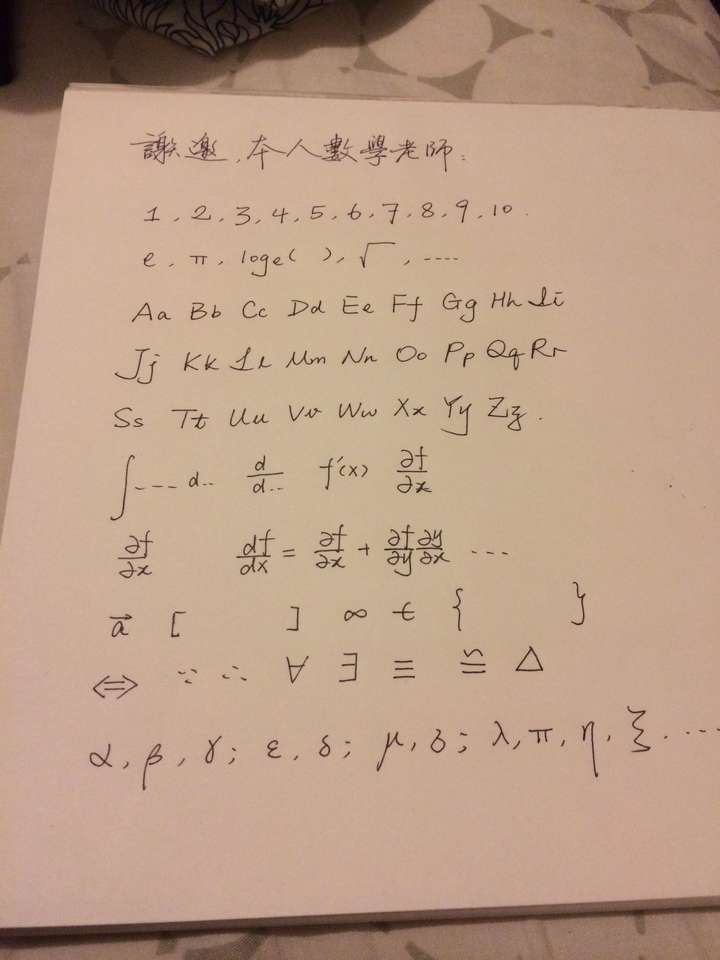 謝邀,本人數學老師:
1, 2, 3, 4, 5, 6, 7, 8, 9, 10.
e, π, loge( ), √ , ....
Aa Bb Cc Dd Ee Ff Gg Hh Ii
Jj Kk Ll Mm Nn Oo Pp Qq Rr
Ss Tt Uu Vv Ww Xx Yy Zz.
∫---- d.. d/d.. f'(x) ∂f/∂x
∂f/∂x df/dx = ∂f/∂x + ∂f/∂y ∂y/∂x ...
a⃗ [ ] ∞ { }
⇔ ∵ ∴ ∀ ∃ ≡ ≌ △
α, β, γ; ε, δ; μ, ; λ, π, η, ξ.....